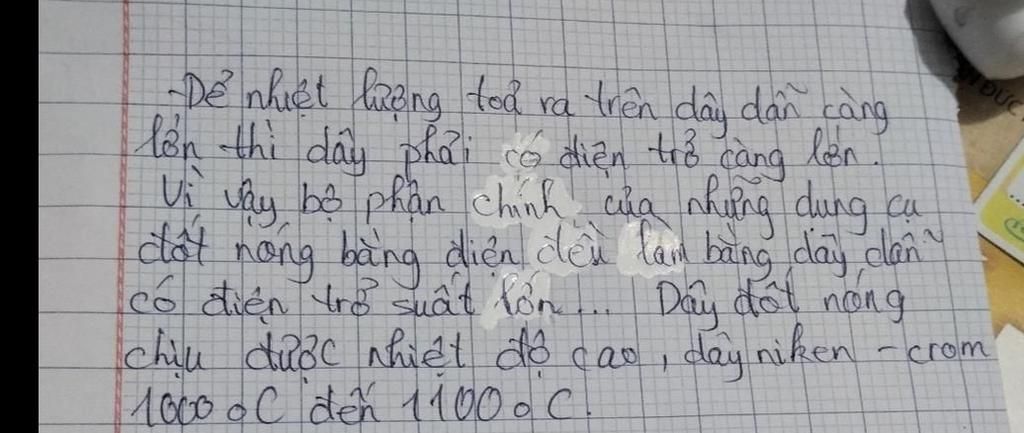 -Để nhiệt lượng toả ra trên dây dẫn càng
lớn thì dây phải có điện trở càng lớn.
Vì vậy bộ phận chính của những dung cu
đốt nóng bằng điện đều làm bằng dây dẫn
có điện trở suất lớn... Dây đốt nóng
chịu được nhiệt độ cao, dây niken - crom
1000 oC đến 1100 oC.
ĐỨC